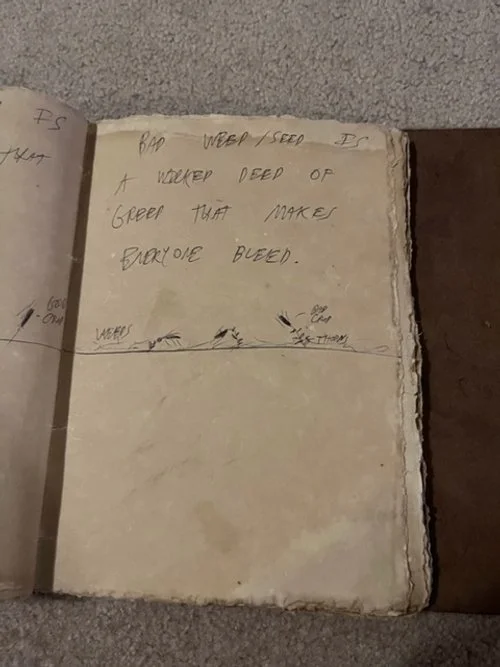 IS
THAT
BAD WEED/SEED IS
A WICKED DEED OF
GREED THAT MAKES
EVERYONE BLEED.
CROP
WEEDS
BAD
CROP